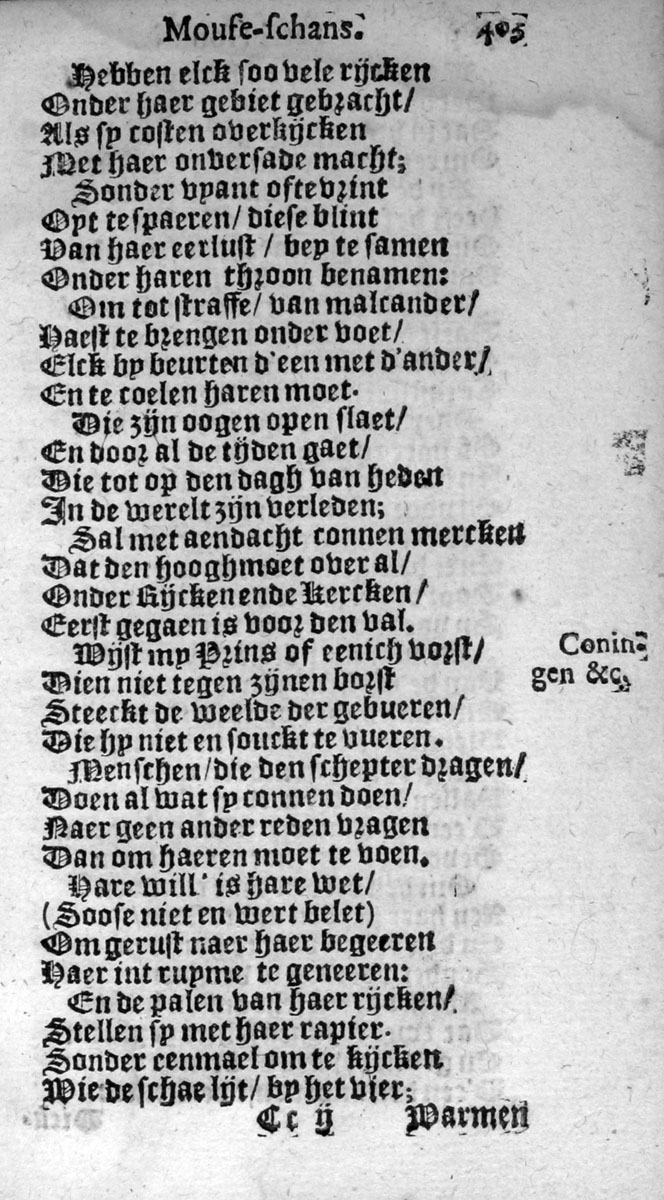 Mouse-schans. 405
Hebben elck soo vele rijcken
Onder haer gebiet gebracht/
Als sy costen overkijcken
Met haer onversade macht;
Sonder vyant oft evrint
Opt te spaeren/ diese blint
Van haer eerlust/ bey te samen
Onder haren throon benamen:
Om tot straffe/ van malcander/
Haest te brengen onder voet/
Elck by beurten d'een met d'ander/
En te coelen haren moet.
Die zijn oogen open slaet/
En door al de tijden gaet/
Die tot op den dagh van heden
In de werelt zijn verleden;
Sal met aendacht connen mercken
Dat den hooghmoet over al/
Onder Rijcken ende Kercken/
Eerst gegaen is voor den val.
Wijst my Prins of eenich vorst/
Dien niet tegen zijnen borst
Steeckt de weelde der gebueren/
Die hy niet en souckt te vueren.
Menschen/ die den schepter dragen/
Doen al wat sy connen doen/
Naer geen ander reden vragen
Dan om haeren moet te voen.
Hare will' is hare wet/
(Soose niet en wert belet)
Om gerust naer haer begeeren
Haer int ruyme te geneeren:
En de palen van haer rijcken/
Stellen sy met haer rapier.
Sonder eenmael om te kijcken
Wie de schae lijt/ by het vier;
Cc ij Warmen
Conin-
gen &c.